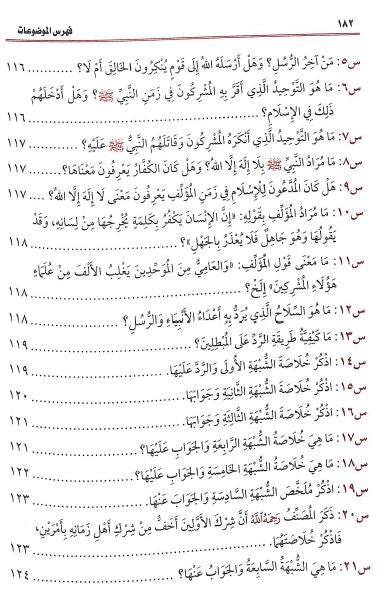 ١٨٢ فهرس الموضوعات
س٥: مَنْ آخِرُ الرُّسُلِ؟ وَهَلْ أَرْسَلَهُ اللهُ إِلَى قَوْمٍ يُنْكِرُونَ الْخَالِقَ أَمْ لَا؟ ........... ١١٦
س٦: مَا هُوَ التَّوْحِيدُ الَّذِي أَقَرَّ بِهِ الْمُشْرِكُونَ فِي زَمَنِ النَّبِيِّ ﷺ؟ وَهَلْ أَدْخَلَهُمْ
ذَلِكَ فِي الْإِسْلَامِ؟ ........... ١١٦
س٧: مَا هُوَ التَّوْحِيدُ الَّذِي أَنْكَرَهُ الْمُشْرِكُونَ وَقَاتَلَهُمُ النَّبِيُّ ﷺ عَلَيْهِ؟ ........... ١١٧
س٨: مَا مُرَادُ النَّبِيِّ ﷺ بِلَا إِلَهَ إِلَّا اللهُ؟ وَهَلْ كَانَ الْكُفَّارُ يَعْرِفُونَ مَعْنَاهَا؟ ........... ١١٧
س٩: هَلْ كَانَ الْمُدَّعُونَ لِلْإِسْلَامِ فِي زَمَنِ الْمُؤَلِّفِ يَعْرِفُونَ مَعْنَى لَا إِلَهَ إِلَّا اللهُ؟ .... ١١٧
س١٠: مَا مُرَادُ الْمُؤَلِّفِ بِقَوْلِهِ: «إِنَّ الْإِنْسَانَ يَكْفُرُ بِكَلِمَةٍ يُخْرِجُهَا مِنْ لِسَانِهِ، وَقَدْ
يَقُولُهَا وَهُوَ جَاهِلٌ فَلَا يُعْذَرُ بِالْجَهْلِ»؟ ........... ١١٨
س١١: مَا مَعْنَى قَوْلِ الْمُؤَلِّفِ: «وَالْعَامِّيُّ مِنَ الْمُوَحِّدِينَ يَغْلِبُ الْأَلْفَ مِنْ عُلَمَاءِ
هَؤُلَاءِ الْمُشْرِكِينَ» إِلَخْ؟ ........... ١١٨
س١٢: مَا هُوَ السِّلَاحُ الَّذِي يُرَدُّ بِهِ أَعْدَاءُ الْأَنْبِيَاءِ وَالرُّسُلِ؟ ........... ١١٨
س١٣: مَا كَيْفِيَّةُ طَرِيقَةِ الرَّدِّ عَلَى الْمُبْطِلِينَ؟ ........... ١١٩
س١٤: اذْكُرْ خُلَاصَةَ الشُّبْهَةِ الْأُولَى وَالرَّدَّ عَلَيْهَا. ........... ١١٩
س١٥: اذْكُرْ خُلَاصَةَ الشُّبْهَةِ الثَّانِيَةِ وَجَوَابَهَا. ........... ١٢٠
س١٦: اذْكُرْ خُلَاصَةَ الشُّبْهَةِ الثَّالِثَةِ وَجَوَابَهَا. ........... ١٢١
س١٧: مَا هِيَ خُلَاصَةُ الشُّبْهَةِ الرَّابِعَةِ وَالْجَوَابِ عَلَيْهَا؟ ........... ١٢١
س١٨: مَا هِيَ خُلَاصَةُ الشُّبْهَةِ الْخَامِسَةِ وَالْجَوَابِ عَلَيْهَا؟ ........... ١٢٢
س١٩: اذْكُرْ مُلَخَّصَ الشُّبْهَةِ السَّادِسَةِ وَالْجَوَابَ عَنْهَا. ........... ١٢٣
س٢٠: ذَكَرَ الْمُصَنِّفُ رَحِمَهُ اللهُ أَنَّ شِرْكَ الْأَوَّلِينَ أَخَفُّ مِنْ شِرْكِ أَهْلِ زَمَانِهِ بِأَمْرَيْنِ،
فَاذْكُرْ خُلَاصَتَهُمَا. ........... ١٢٣
س٢١: مَا هِيَ الشُّبْهَةُ السَّابِعَةُ وَالْجَوَابُ عَنْهَا؟ ........... ١٢٤